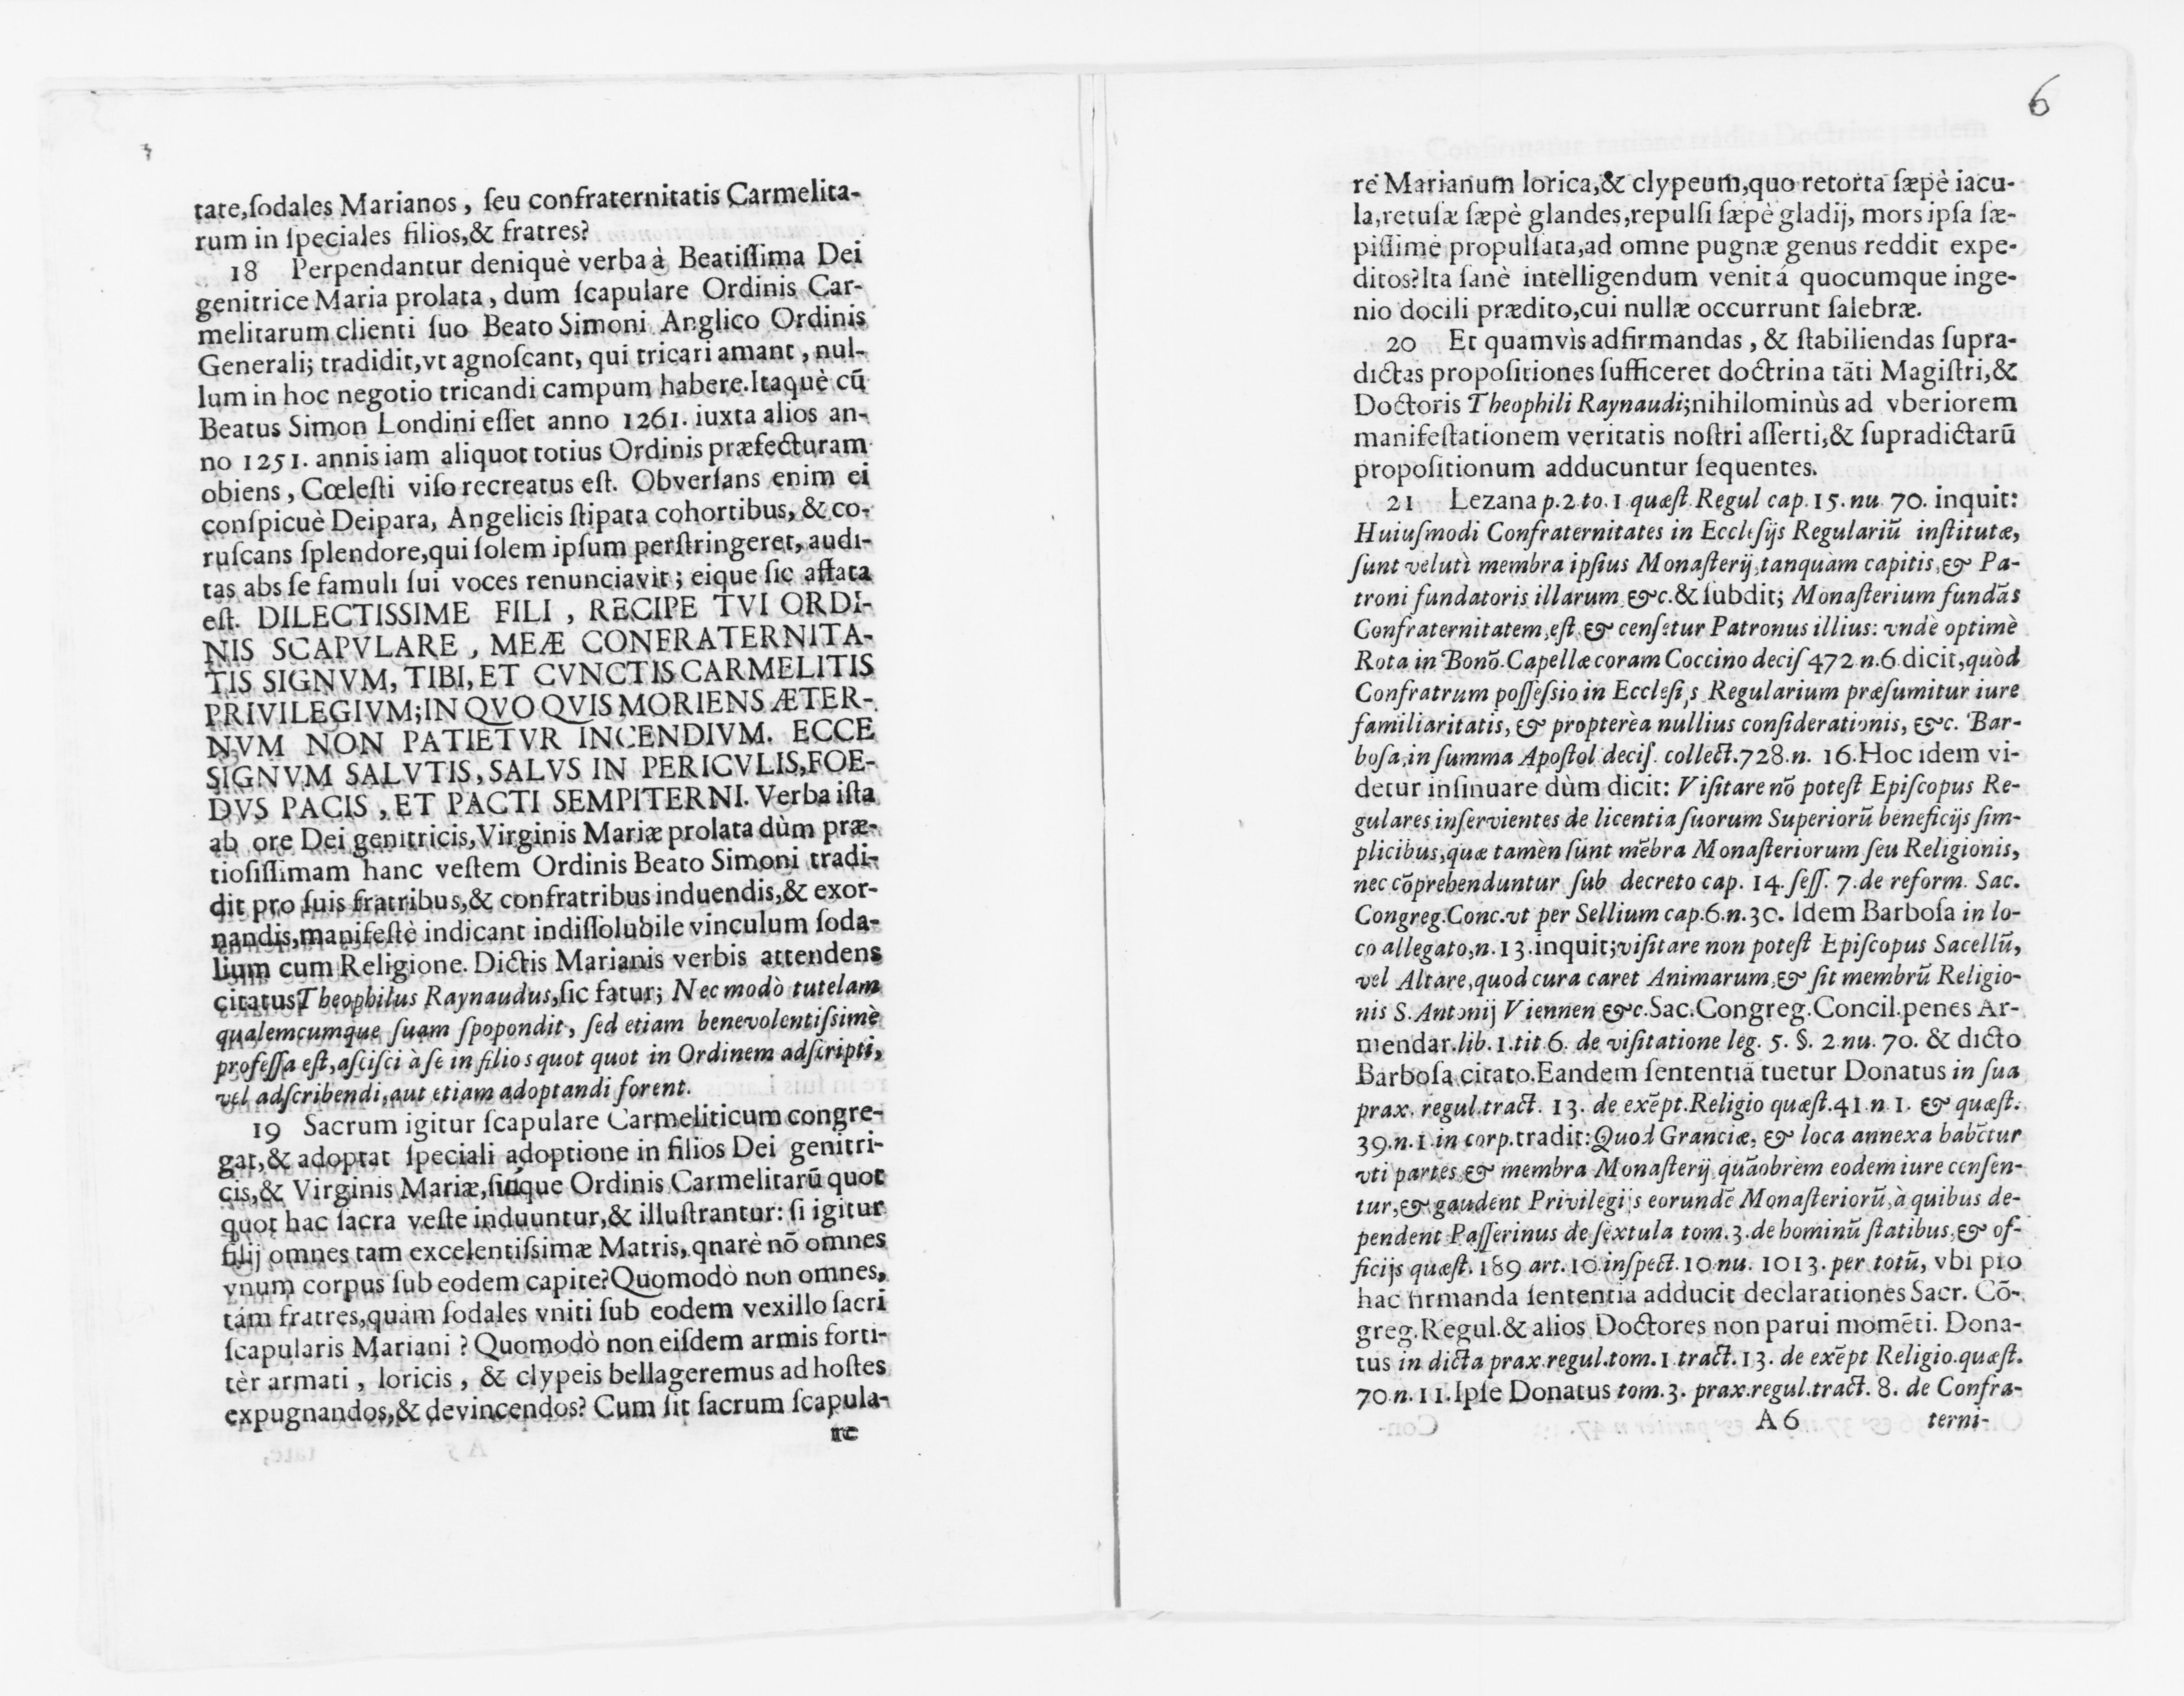 tate,ſodales Marianos , ſeu confraternitatis Carmelita-
rum in ſpeciales filios,& fratres?
18 Perpendantur deniquè verba à Beatiſſima Dei
genitrice Maria prolata , dum ſcapulare Ordinis Car-
melitarum clienti ſuo Beato Simoni Anglico Ordinis
Generali; tradidit,vt agnoſcant, qui tricari amant , nul-
lum in hoc negotio tricandi campum habere.Itaquè cũ
Beatus Simon Londini eſſet anno 1261. iuxta alios an-
no 1251. annis iam aliquot totius Ordinis præfecturam
obiens , Cœleſti viſo recreatus eſt. Obverſans enim ei
conſpicuè Deipara, Angelicis ſtipata cohortibus, & co-
ruſcans ſplendore,qui ſolem ipſum perſtringeret, audi-
tas abs ſe famuli ſui voces renunciavit ; eique ſic affata
eſt. DILECTISSIME FILI , RECIPE TVI ORDI-
NIS SCAPVLARE , MEÆ CONFRATERNITA-
TIS SIGNVM, TIBI, ET CVNCTIS CARMELITIS
PRIVILEGIVM;IN QVO QVIS MORIENS ÆTER-
NVM NON PATIETVR INCENDIVM. ECCE
SIGNVM SALVTIS, SALVS IN PERICVLIS,FOE-
DVS PACIS , ET PACTI SEMPITERNI. Verba iſta
ab ore Dei genitricis,Virginis Mariæ prolata dùm præ-
tioſiſſimam hanc veſtem Ordinis Beato Simoni tradi-
dit pro ſuis fratribus,& confratribus induendis,& exor-
nandis,manifeſtè indicant indiſſolubile vinculum ſoda-
lium cum Religione. Dictis Marianis verbis attendens
citatus Theophilus Raynaudus,ſic fatur; Nec modò tutelam
qualemcumque ſuam ſpopondit , ſed etiam benevolentiſsimè
profeſſa eſt,aſciſci à ſe in filios quot quot in Ordinem adſcripti,
vel adſcribendi,aut etiam adoptandi forent.
19 Sacrum igitur ſcapulare Carmeliticum congre-
gat,& adoptat ſpeciali adoptione in filios Dei genitri-
cis,& Virginis Mariæ,ſuíque Ordinis Carmelitarũ quot
quot hac ſacra veſte induuntur,& illuſtrantur: ſi igitur
filij omnes tam excelentiſsimæ Matris, qnarè nõ omnes
vnum corpus ſub eodem capite?Quomodò non omnes,
tám fratres,quàm ſodales vniti ſub eodem vexillo ſacri
ſcapularis Mariani ? Quomodò non eiſdem armis forti-
tèr armati , loricis , & clypeis bellageremus ad hoſtes
expugnandos,& devincendos? Cum ſit ſacrum ſcapula-
re
6
re Marianum lorica,& clypeum,quo retorta ſæpè iacu-
la,retuſæ ſæpè glandes,repulſi ſæpè gladij, mors ipſa ſæ-
piſſimè propulſata,ad omne pugnæ genus reddit expe-
ditos?Ita ſanè intelligendum venit á quocumque inge-
nio docili prædito,cui nullæ occurrunt ſalebræ.
20 Et quamvìs adfirmandas , & ſtabiliendas ſupra-
dictas propoſitiones ſufficeret doctrina tãti Magiſtri,&
Doctoris Theophili Raynaudi;nihilominùs ad vberiorem
manifeſtationem veritatis noſtri aſſerti,& ſupradictarũ
propoſitionum adducuntur ſequentes.
21 Lezana p.2 to. 1 quæſt. Regul cap. 15. nu. 70. inquit:
Huiuſmodi Confraternitates in Eccleſijs Regulariũ inſtitutæ,
ſunt velutì membra ipſius Monaſterij,tanquàm capitis,& Pa-
troni fundatoris illarum &c.& ſubdit; Monaſterium fundãs
Confraternitatem,eſt & cenſetur Patronus illius: vndè optimè
Rota in Bonõ.Capellæ coram Coccino deciſ 472 n.6.dicit,quòd
Confratrum poſſeſsio in Eccleſijs Regularium præſumitur iure
familiaritatis, & propterèa nullius conſiderationis, &c. Bar-
boſa,in ſumma Apoſtol deciſ. collect.728.n. 16.Hoc idem vi-
detur inſinuare dùm dicit: Viſitare nõ poteſt Epiſcopus Re-
gulares inſervientes de licentia ſuorum Superiorũ beneficijs ſim-
plicibus,quæ tamèn ſunt mẽbra Monaſteriorum ſeu Religionis,
nec cõprehenduntur ſub decreto cap. 14. ſeſſ. 7. de reform. Sac.
Congreg.Conc.vt per Sellium cap.6.n.30. Idem Barboſa in lo-
co allegato,n.13.inquit;viſitare non poteſt Epiſcopus Sacellũ,
vel Altare,quod cura caret Animarum,& ſit membrũ Religio-
nis S. Antonij Viennen &c.Sac.Congreg.Concil.penes Ar-
mendar.lib. 1.tit 6. de viſitatione leg. 5. §. 2 nu. 70. & dicto
Barboſa citato.Eandem ſententiã tuetur Donatus in ſua
prax. regul.tract. 13. de exẽpt.Religio quæſt.41 n 1. & quæſt.
39.n.1.in corp.tradit:Quod Granciæ, & loca annexa habẽtur
vti partes,& membra Monaſterij quãobrèm eodem iure cenſen-
tur,& gaudent Privilegijs eorundẽ Monaſteriorũ,à quibus de-
pendent Paſſerinus de ſextula tom.3.de hominũ ſtatibus,& of-
ficijs quæſt. 189 art. 10 inſpect. 10 nu. 1013. per totũ, vbi pro
hac firmanda ſententia adducit declarationes Sacr. Cõ-
greg.Regul.& alios Doctores non parui momẽti. Dona-
tus in dicta prax.regul.tom.1.tract.13. de exẽpt Religio.quæſt.
70.n.11.Ipſe Donatus tom.3. prax.regul.tract. 8. de Confra-
A 6 terni-